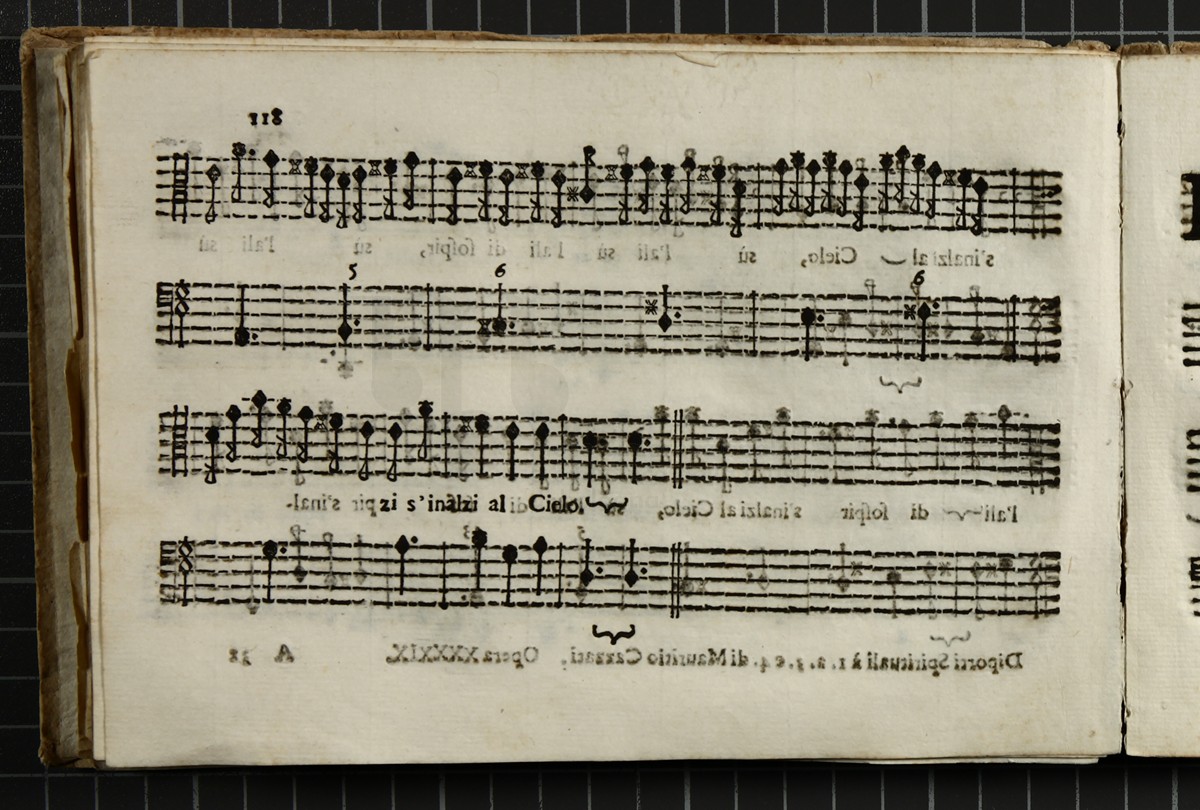 s'inalzi al Cielo, sù l'ali sù l'ali di sospir, sù l'ali sù
5 6 6
zi s'inalzi al Cielo.
l'ali di sospir s'inalzi al Cielo,
Diporti Spirituali à 1. 2. 3. e 4. di Mauritio Cazzati, Opera XXXXIX. A 32